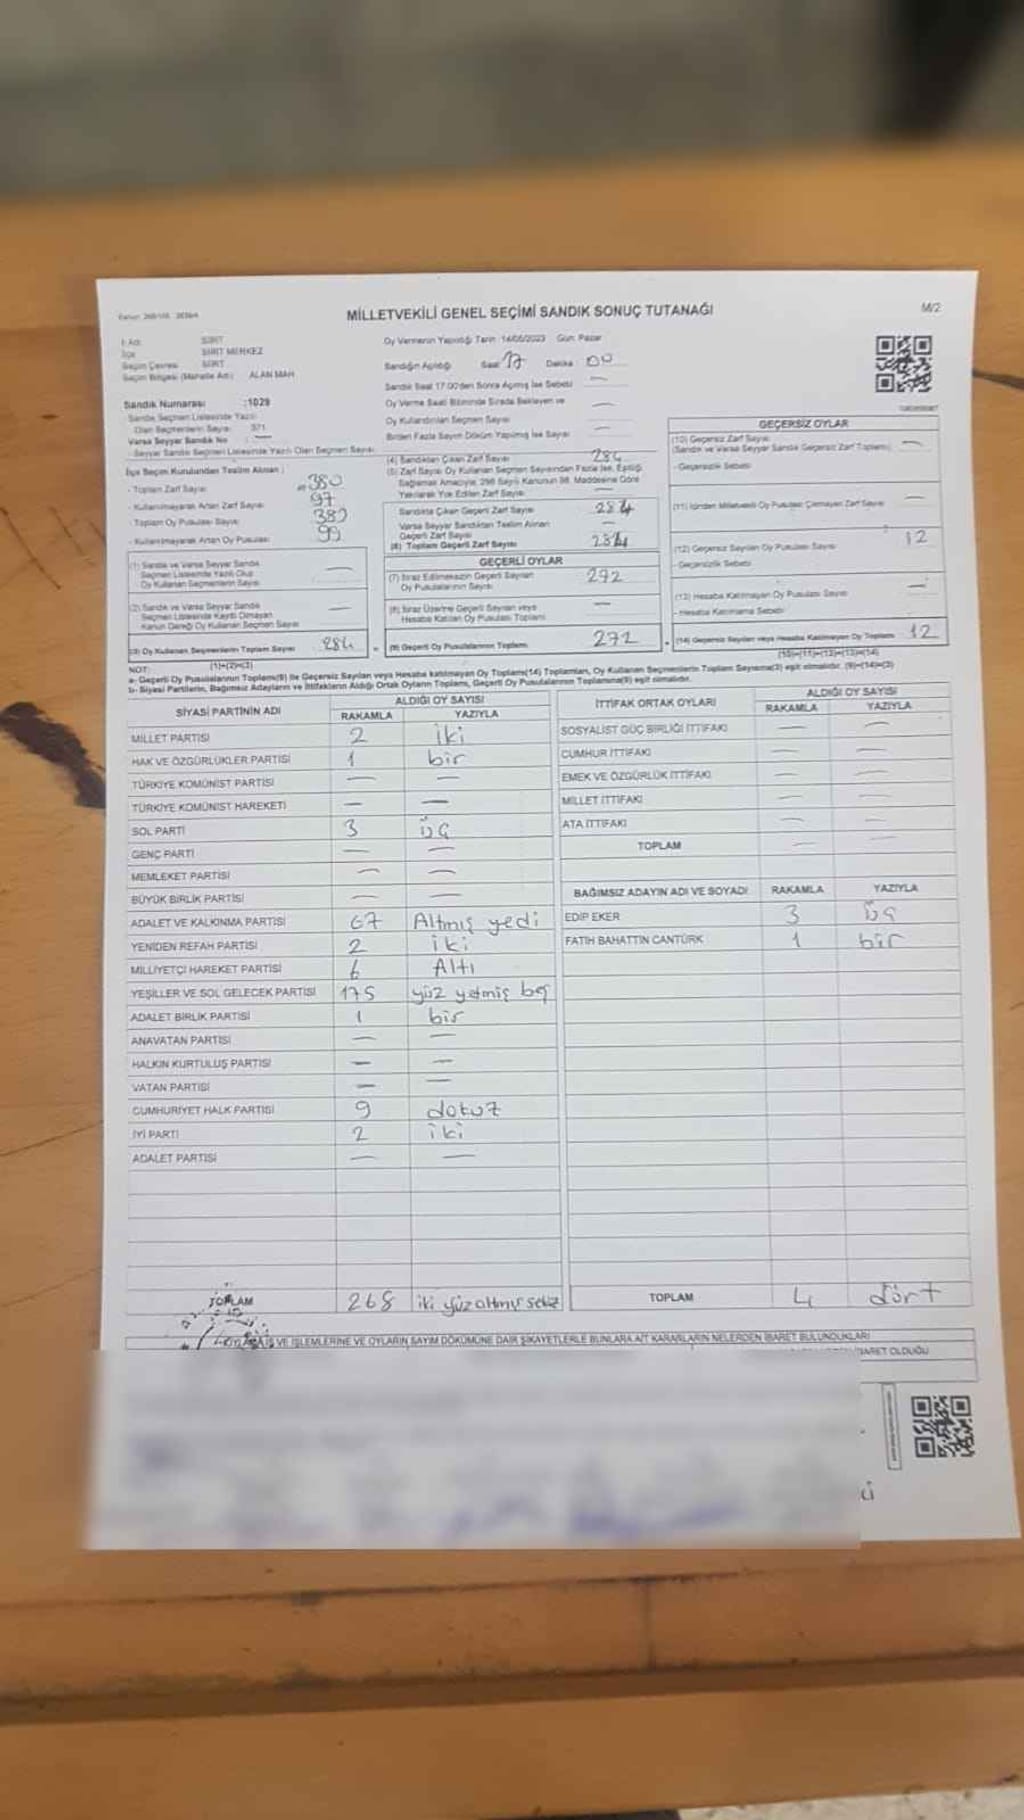 MİLLETVEKİLİ GENEL SEÇİMİ SANDIK SONUÇ TUTANAĞI
M/2
İli Adı: SİİRT
İlçe SİİRT MERKEZ
Seçim Çevresi SİİRT
Seçim Bölgesi (Mahalle Adı) ALAN MAH
Sandık Numarası :1029
Sandık Seçmen Listesinde Yazılı
Olan Seçmenlerin Sayısı 371
Varsa Seyyar Sandık No
Seyyar Sandık Seçmen Listesinde Yazılı Olan Seçmen Sayısı
İlçe Seçim Kurulundan Teslim Alınan ;
- Toplam Zarf Sayısı 380
- Kullanılmayarak Artan Zarf Sayısı 97
- Toplam Oy Pusulası Sayısı 383
- Kullanılmayarak Artan Oy Pusulası 99
(1) Sandık ve Varsa Seyyar Sandık
Seçmen Listesinde Yazılı Olup
Oy Kullanan Seçmenlerin Sayısı —
(2) Sandık ve Varsa Seyyar Sandık
Seçmen Listesinde Kayıtlı Olmayan
Kanun Gereği Oy Kullanan Seçmen Sayısı —
(3) Oy Kullanan Seçmenlerin Toplam Sayısı 284
(1)+(2)=(3)
Oy Vermenin Yapıldığı Tarih :14/05/2023 Gün: Pazar
Sandığın Açıldığı Saat 17 Dakika 00
Sandık Saat 17.00'den Sonra Açılmış İse Sebebi —
Oy Verme Saati Bitiminde Sırada Bekleyen ve
Oy Kullandırılan Seçmen Sayısı —
Birden Fazla Sayım Döküm Yapılmış İse Sayısı —
(4) Sandıktan Çıkan Zarf Sayısı 284
(5) Zarf Sayısı Oy Kullanan Seçmen Sayısından Fazla İse, Eşitliği
Sağlamak Amacıyla, 298 Sayılı Kanunun 98. Maddesine Göre
Yakılarak Yok Edilen Zarf Sayısı —
Sandıkta Çıkan Geçerli Zarf Sayısı 284
Varsa Seyyar Sandıktan Teslim Alınan
Geçerli Zarf Sayısı —
(6) Toplam Geçerli Zarf Sayısı 284
GEÇERLİ OYLAR
(7) İtiraz Edilmeksizin Geçerli Sayılan
Oy Pusulalarının Sayısı 272
(8) İtiraz Üzerine Geçerli Sayılan veya
Hesaba Katılan Oy Pusulası Toplamı —
(9) Geçerli Oy Pusulalarının Toplamı 272
GEÇERSİZ OYLAR
(10) Geçersiz Zarf Sayısı
(Sandık ve Varsa Seyyar Sandık Geçersiz Zarf Toplamı) —
- Geçersizlik Sebebi
(11) İçinden Milletvekili Oy Pusulası Çıkmayan Zarf Sayısı —
(12) Geçersiz Sayılan Oy Pusulası Sayısı 12
- Geçersizlik Sebebi
(13) Hesaba Katılmayan Oy Pusulası Sayısı —
- Hesaba Katılmama Sebebi
(14) Geçersiz Sayılan veya Hesaba Katılmayan Oy Pusulası Toplamı 12
(10)+(11)+(12)+(13)=(14)
NOT:
a- Geçerli Oy Pusulalarının Toplamı(9) ile Geçersiz Sayılan veya Hesaba katılmayan Oy Toplamı(14) Toplamları, Oy Kullanan Seçmenlerin Toplam Sayısına(3) eşit olmalıdır. (9)+(14)=(3)
b- Siyasi Partilerin, Bağımsız Adayların ve İttifakların Aldığı Ortak Oyların Toplamı, Geçerli Oy Pusulalarının Toplamına(9) eşit olmalıdır.
SİYASİ PARTİNİN ADI ALDIĞI OY SAYISI
RAKAMLA YAZIYLA
MİLLET PARTİSİ 2 iki
HAK VE ÖZGÜRLÜKLER PARTİSİ 1 bir
TÜRKİYE KOMÜNİST PARTİSİ — —
TÜRKİYE KOMÜNİST HAREKETİ — —
SOL PARTİ 3 üç
GENÇ PARTİ — —
MEMLEKET PARTİSİ — —
BÜYÜK BİRLİK PARTİSİ — —
ADALET VE KALKINMA PARTİSİ 67 Altmış yedi
YENİDEN REFAH PARTİSİ 2 iki
MİLLİYETÇİ HAREKET PARTİSİ 6 Altı
YEŞİLLER VE SOL GELECEK PARTİSİ 175 yüz yetmiş beş
ADALET BİRLİK PARTİSİ 1 bir
ANAVATAN PARTİSİ — —
HALKIN KURTULUŞ PARTİSİ — —
VATAN PARTİSİ — —
CUMHURİYET HALK PARTİSİ 9 dokuz
İYİ PARTİ 2 iki
ADALET PARTİSİ — —
TOPLAM 268 iki yüz altmış sekiz
İTTİFAK ORTAK OYLARI ALDIĞI OY SAYISI
RAKAMLA YAZIYLA
SOSYALİST GÜÇ BİRLİĞİ İTTİFAKI — —
CUMHUR İTTİFAKI — —
EMEK VE ÖZGÜRLÜK İTTİFAKI — —
MİLLET İTTİFAKI — —
ATA İTTİFAKI — —
TOPLAM — —
BAĞIMSIZ ADAYIN ADI VE SOYADI RAKAMLA YAZIYLA
EDİP EKER 3 üç
FATİH BAHATTİN CANTÜRK 1 bir
TOPLAM 4 dört
VE İŞLEMLERİNE VE OYLARIN SAYIM DÖKÜMÜNE DAİR ŞİKAYETLERLE BUNLARA AİT KARARLARIN NELERDEN İBARET BULUNDUKLARI
İBARET OLDUĞU